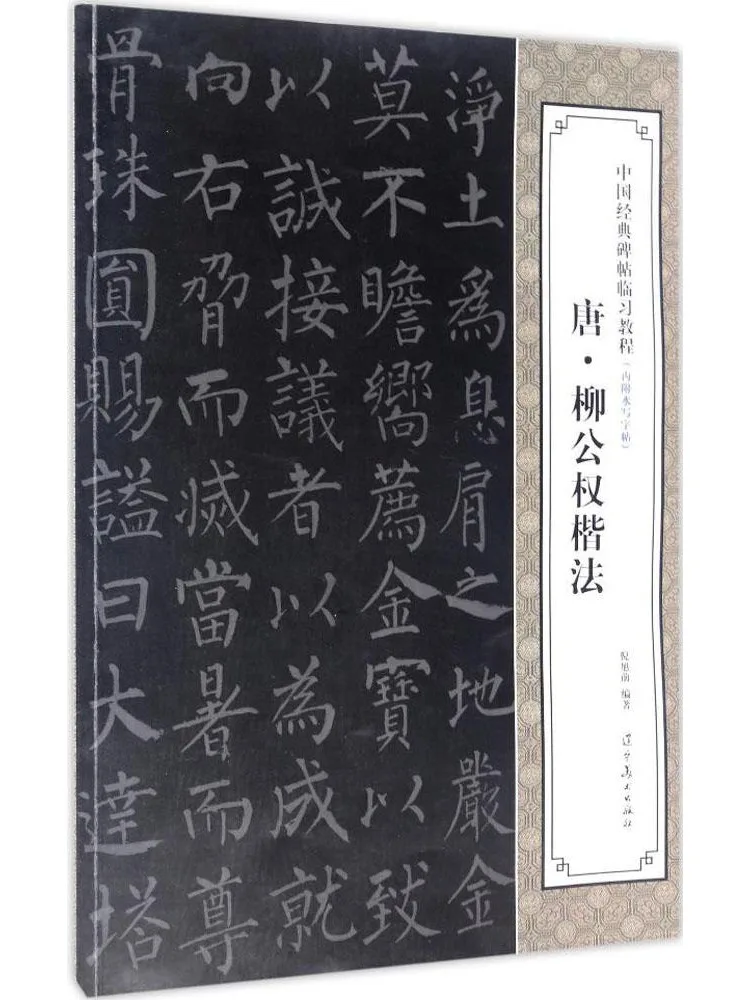 中国经典碑帖临习教程(内附水写字帖)
唐·柳公权楷法
倪旭前 编著
辽宁美术出版社
净土為息肩之地嚴金
莫不瞻嚮薦金寶以致
以誠接議者以為成就
向右脅而滅當暑而尊
骨珠圓賜謚曰大達塔